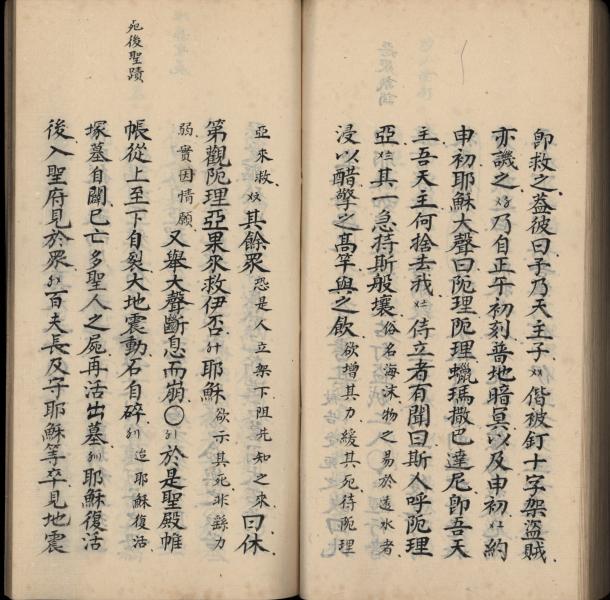 卽救之葢彼曰予乃天主子偕被釘十字架盜賊
亦譏之乃自正午初刻普地暗冥以及申初約
申初耶穌大聲曰阨理阨理蠟瑪撒巴達尼卽吾天
主吾天主何捨去我侍立者有聞曰斯人呼阨理
亞其一急持斯般壤俗名海沫物之易於透水者
浸以醋擎之髙竿與之飲欲增其力緩其死待阨理
亞來救其餘眾恐是人立架下阻先知之來曰休
第觀阨理亞果來救伊否耶穌欲示其死非繇力
弱實因情願又舉大聲斷息而崩〇於是聖殿帷
帳從上至下自裂大地震動石自碎迨耶穌復活
塚墓自闢已亡多聖人之屍再活出墓耶穌復活
後入聖府見於眾百夫長及守耶穌等卒見地震
死後聖蹟